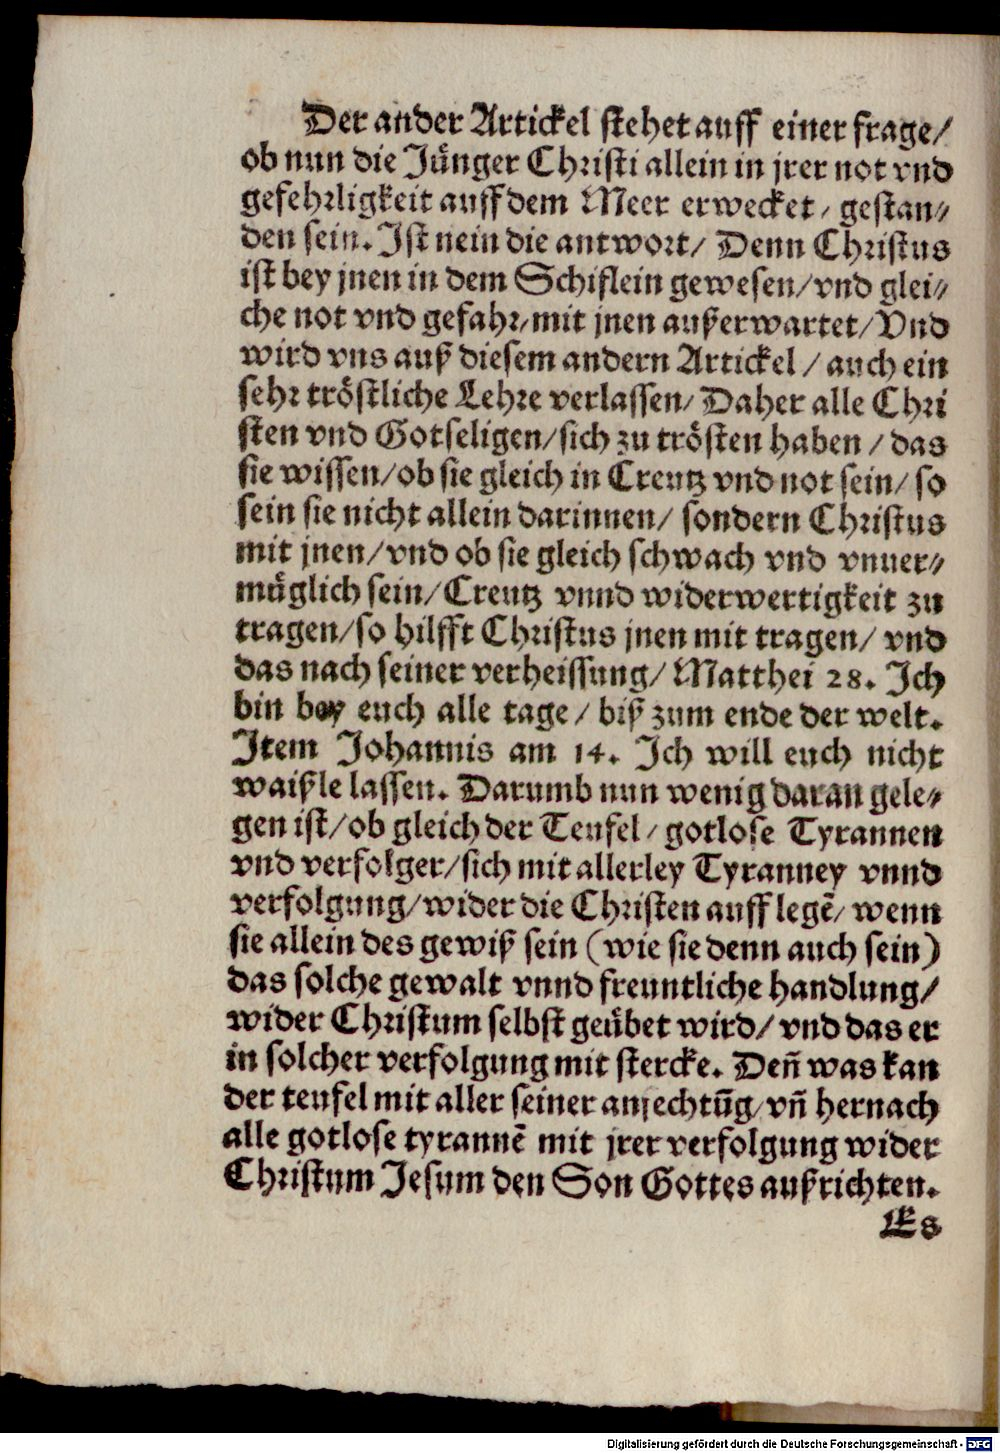 Der ander Artickel stehet auff einer frage/
ob nun die Jünger Christi allein in jrer not vnd
gefehrligkeit auff dem Meer erwecket/ gestan⸗
den sein. Ist nein die antwort/ Denn Christus
ist bey jnen in dem Schiflein gewesen/ vnd glei⸗
che not vnd gefahr/ mit jnen außerwartet/ Vnd
wird vns auß diesem andern Artickel/ auch ein
sehr tröstliche Lehre verlassen/ Daher alle Chri
sten vnd Gotseligen/ sich zu trösten haben/ das
sie wissen/ ob sie gleich in Creutz vnd not sein/ so
sein sie nicht allein darinnen/ sondern Christus
mit jnen/ vnd ob sie gleich schwach vnd vnuer⸗
müglich sein/ Creutz vnnd widerwertigkeit zu
tragen/ so hilfft Christus jnen mit tragen/ vnd
das nach seiner verheissung/ Matthei 28. Ich
bin bey euch alle tage/ biß zum ende der welt.
Item Johannis am 14. Ich will euch nicht
waißle lassen. Darumb nun wenig daran gele⸗
gen ist/ ob gleich der Teufel/ gotlose Tyrannen
vnd verfolger/ sich mit allerley Tyranney vnnd
verfolgung/ wider die Christen auff legē/ wenn
sie allein des gewiß sein (wie sie denn auch sein)
das solche gewalt vnnd freuntliche handlung/
wider Christum selbst geübet wird/ vnd das er
in solcher verfolgung mit stercke. Deñ was kan
der teufel mit aller seiner anfechtūg/ vñ hernach
alle gotlose tyrannē mit jrer verfolgung wider
Christum Jesum den Son Gottes außrichten.
Es
Digitalisierung gefördert durch die Deutsche Forschungsgemeinschaft - DFG